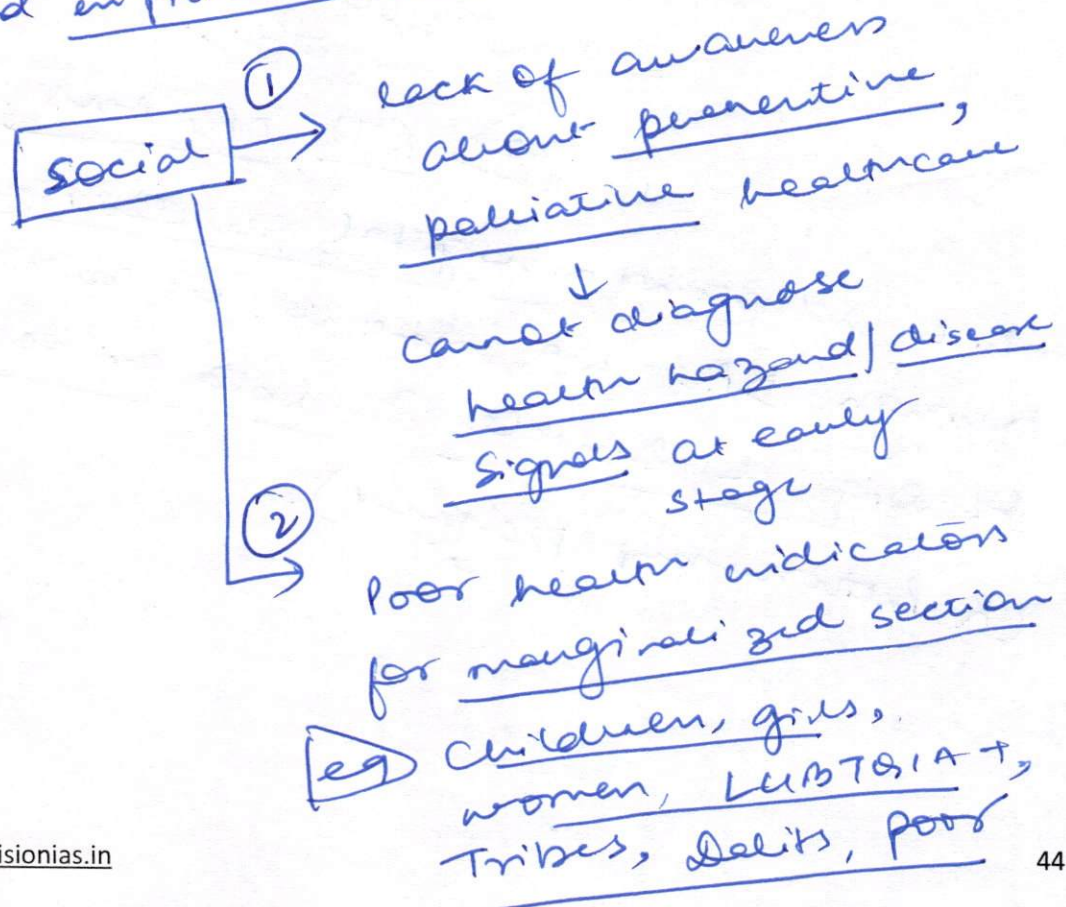 ①
Social → lack of awareness
about preventive,
palliative healthcare
↓
cannot diagnose
health hazard/disease
signals at early
stage
②
Poor health indicators
for marginalized section
eg Children, girls,
women, LGBTQIA+,
Tribes, Dalits, poor
isionias.in
44